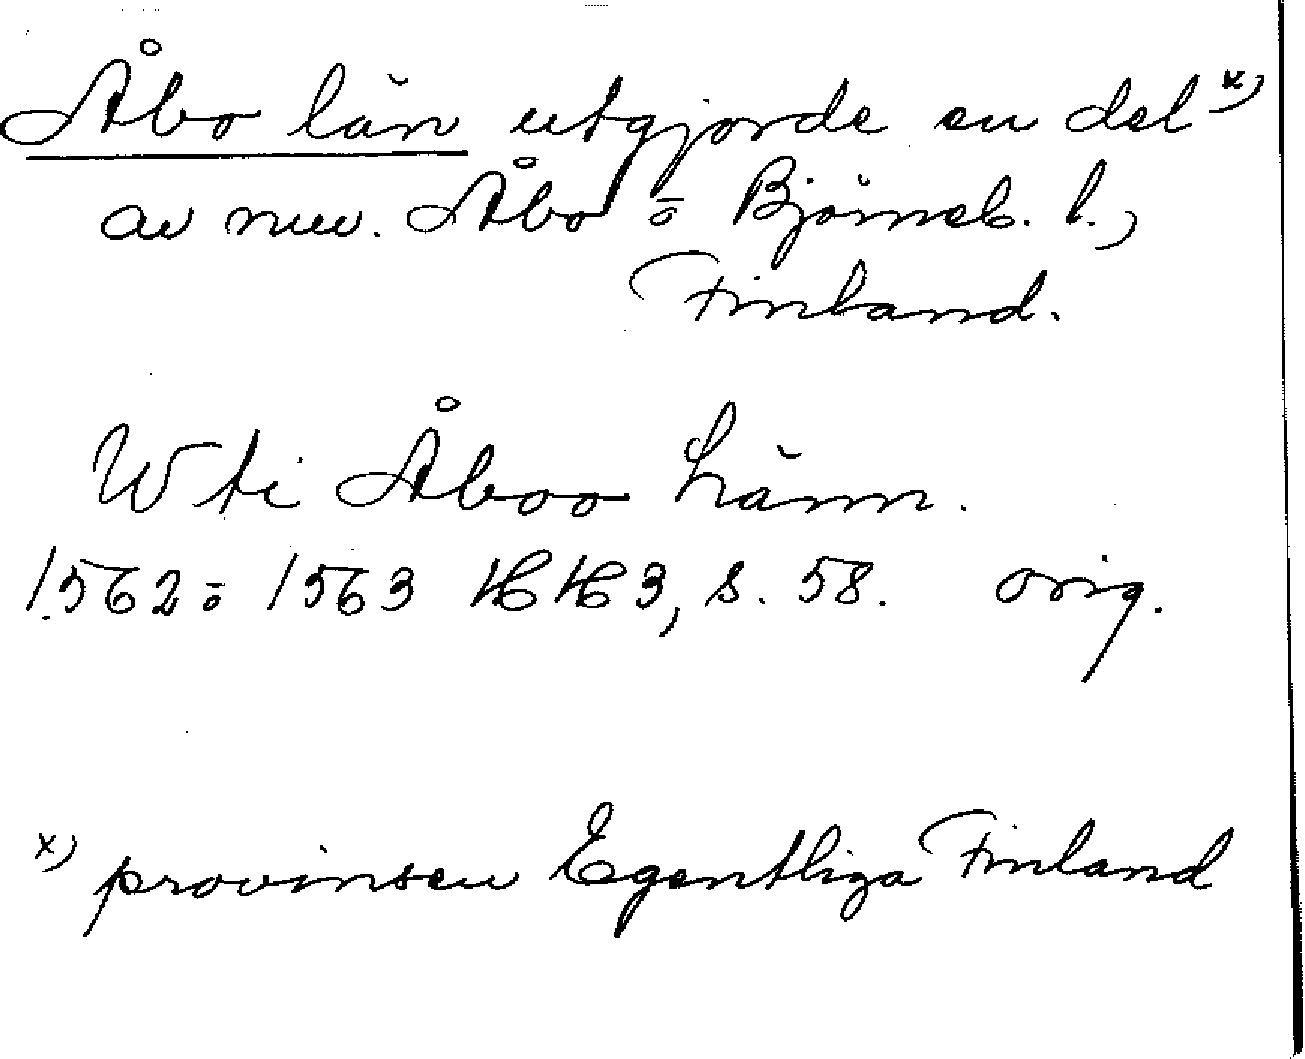 Åbo län utgjorde en del x)
av nuv. Åbo- o Björneb. l.,
Finland.
Wti Åboo Länn.
1562-1563 HH 3, s. 58. orig.
x) provinsen Egentliga Finland